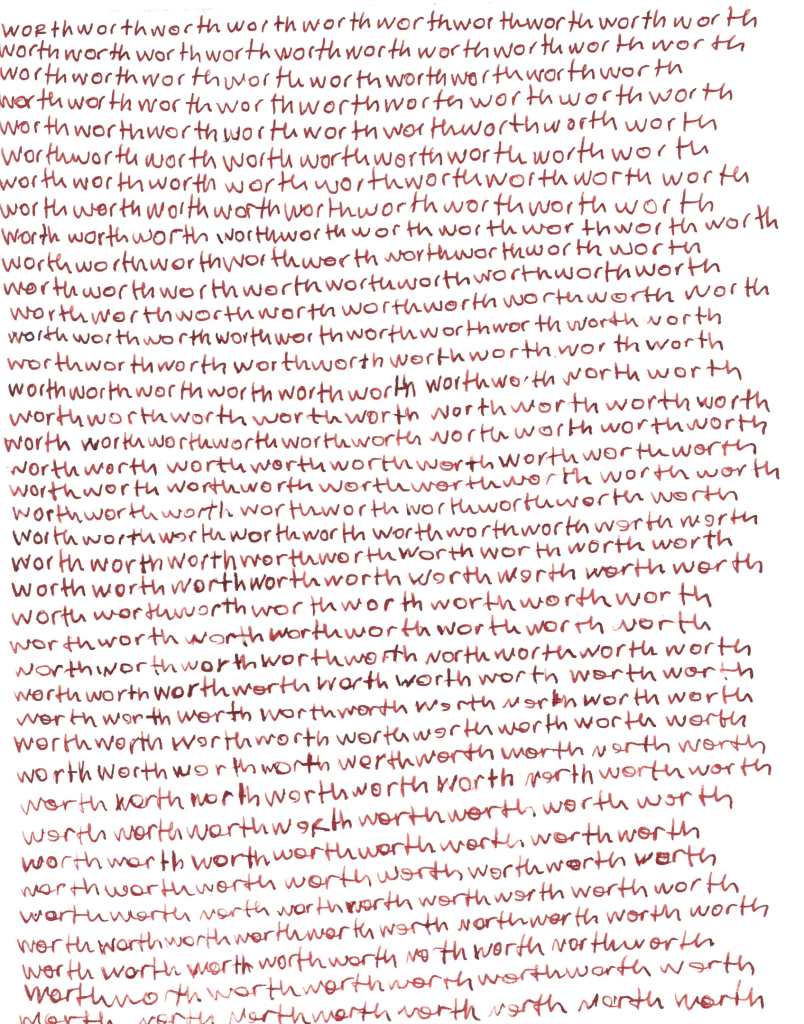 worthworthworth worth worth worthworthworthworth worth
worth worth worth worth worth worth worth worth worth worth
worthworthworth worth worthworthworthworthworth
worth worth worth worth worthworth worth worth worth
worth worthworth worth worth worthworthworth worth
worthworth worth worth worthworthworth worth worth
worth worth worth worth worth worth worth worth worth
worth worth worth worthworthworth worth worth worth
worth worthworth worthworth worth worth worth worth worth
worthworthworthworthworth worthworthworth worth
worthworthworthworthworthworthworthworthworth
worthworthworthworth worthworth worthworth worth
worthworthworthworthworthworthworthworth worth worth
worthworthworth worthworth worthworth worth worth
worthworthworthworthworthworth worthworth worth worth
worthworthworth worthworth worth worth worthworth
worth worthworthworthworthworth worth worth worthworth
worthworth worthworthworthworth worthworthworth
worthworth worthworth worthworthworth worth worth
worthworthworth worthworth worthworthworth worth
worth worthworth worthworth worthworthworth worth worth
worth worthworthworthworthworth worth worth worth
worth worth worthworthworth worth worth worth worth
worth worthworthworth worth worthworth worth
worthworth worth worthworth worthworth worth
worthworthworthworthworth worthworthworth worth
worthworthworthworth worth worth worth worth worth
worth worth worth worthworth worth worth worth worth
worthworth worthworth worthworthworth worth worth
worthworthworthworth worthworth worth worth worth
worth worth worth worthworth worth worth worthworth
worth worthworthworth worthworth worth worth
worth worth worthworthworthworth worthworth
worthworthworth worth worth worthworth worth
worthworth worth worthworth worthworth worth worth
worth worthworthworthworth worth worthworth worth worth
worth worth worth worthworth worth worth worthworth
worthworth worthworthworth worthworth worth
worth worth worthworth worth worth worth worth